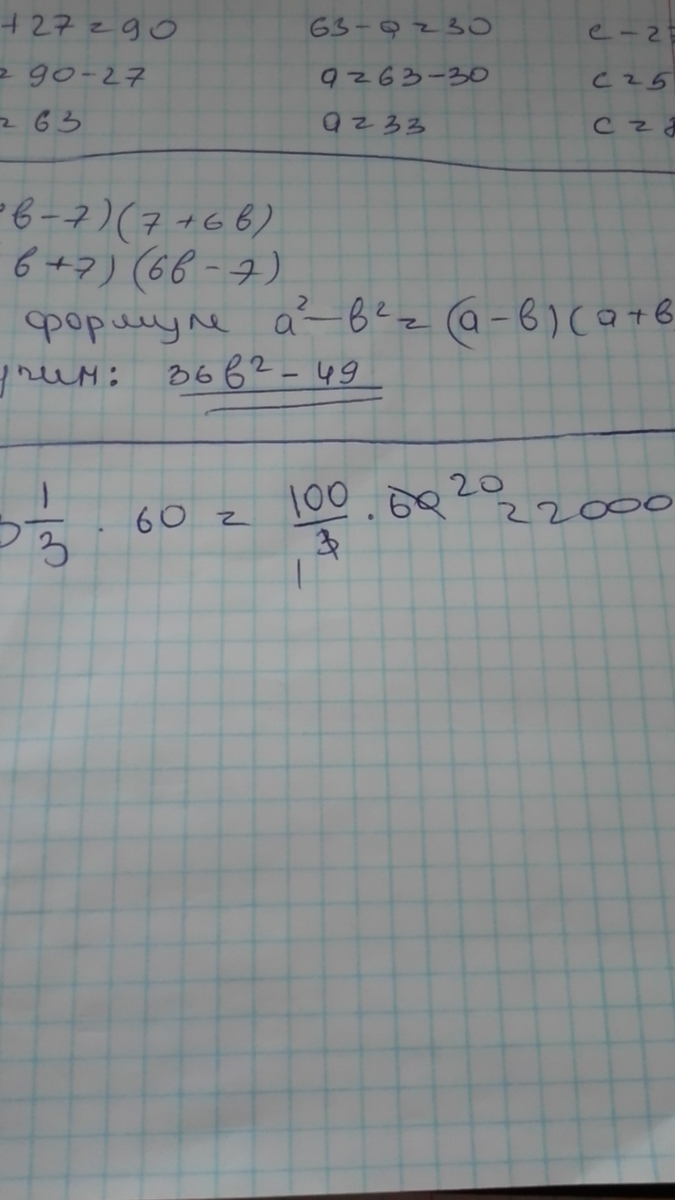 +27=90 63-a=30 c-2
= 90-27 a=63-30 c=5
= 63 a=33 c=
в-7)(7+6в)
в+7) (6в-7)
формуле а²-в²=(а-в)(а+в
учим: 36в²-49
3 1/3 · 60 = 100/3 · 60 20 =2000
1